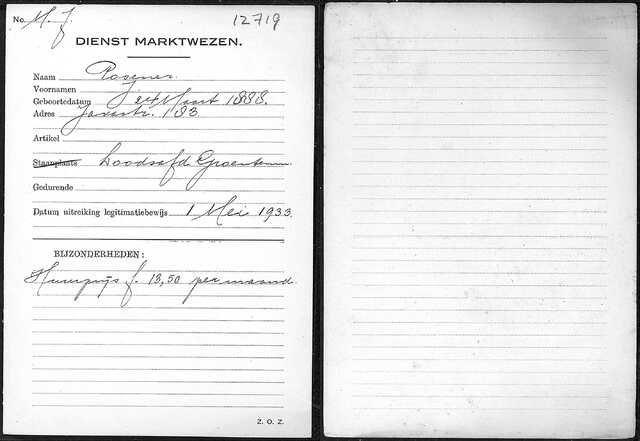 No. M. J. 12719
DIENST MARKTWEZEN.
Naam Posener.
Voornamen J.
Geboortedatum 24 Maart 1888.
Adres Javastr. 183.
Artikel
Staanplaats Loodsafd Groenten
Gedurende
Datum uitreiking legitimatiebewijs 1 Mei 1933.
BIJZONDERHEDEN:
Huurprijs f. 13,50 per maand.
Z. O. Z.